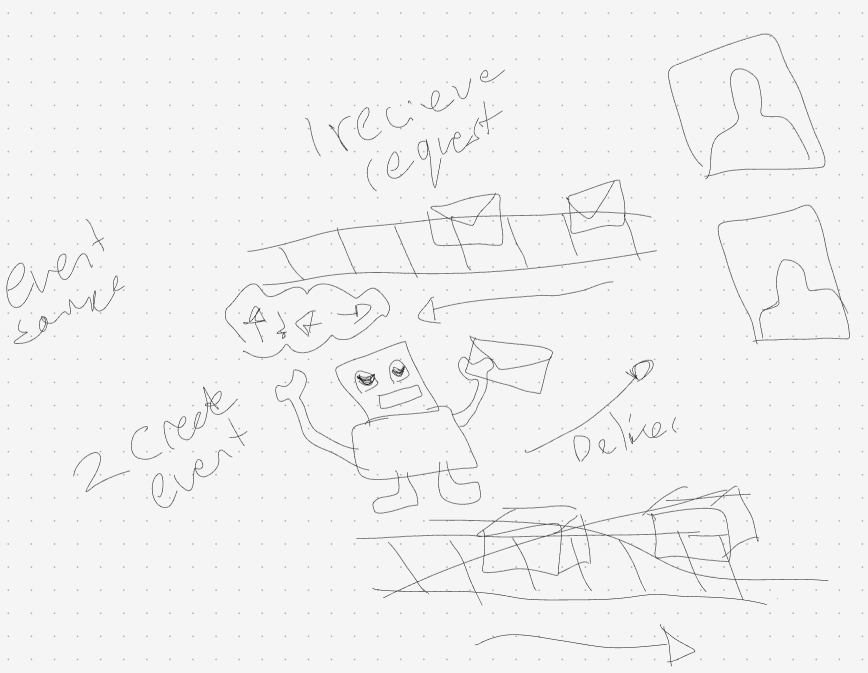 1 recieve
request
event
sample
2 create
event
Deliver